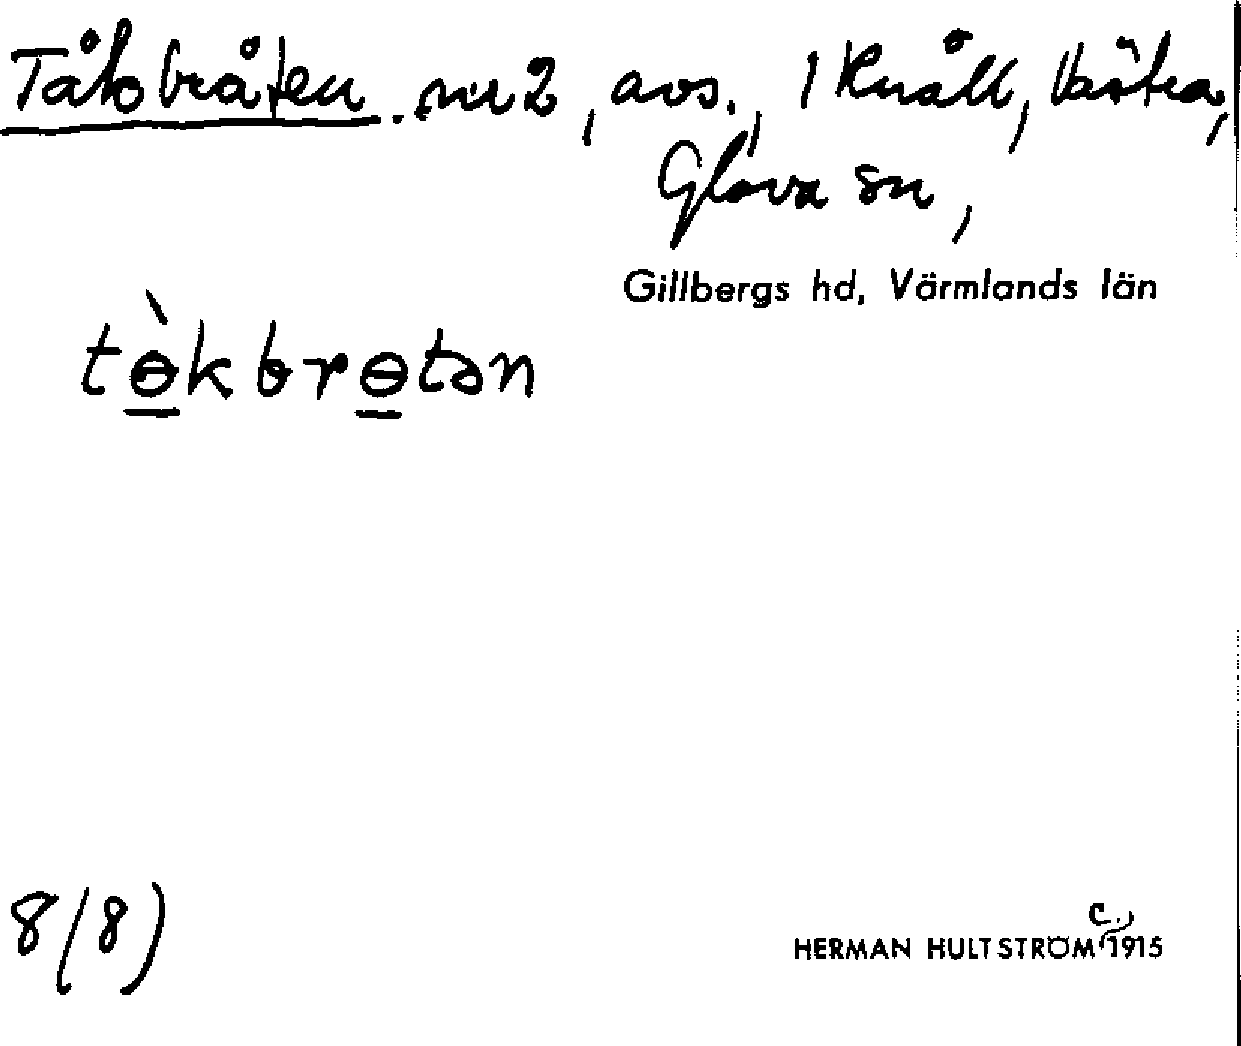 Tåkbråten. nr 2, avs., 1 Knåll, Västra,
Glava sn,
Gillbergs hd, Värmlands län
tɵ̲̀kbrɵ̲tən
8(8)
HERMAN HULTSTRÖM c., 1915